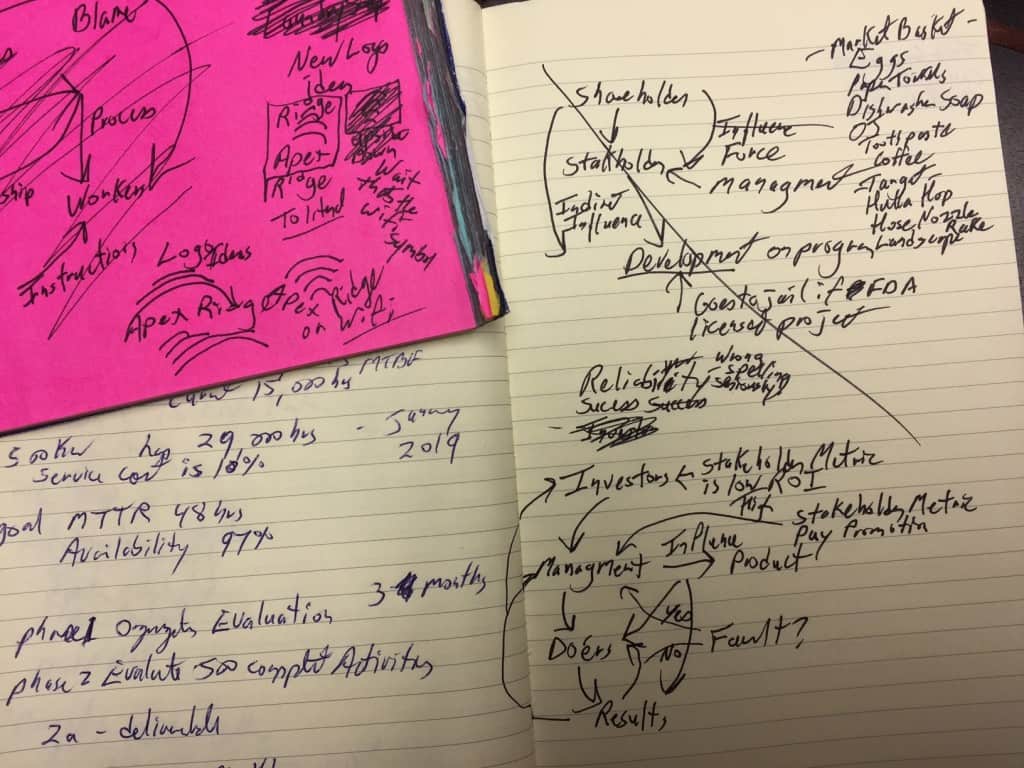 Blame
Process
ship
Workers
Instructions
New Logo
idea
Ridge
Apex
Ridge
To Intend
down
Wait
thats the
wifi
symbol
Logo Ideas
Apex Ridge
Apex Ridge
on Wifi
15,000 hrs MTBF
500KW has 29,000 hrs -
2019
Service cost is 10%
goal MTTR 48 hrs
Availability 97%
3-4 months
phase 1 Evaluation
phase 2 Evaluate 500 Activities
2a -
- Market Basket -
Eggs
Paper Towels
Dishwasher Soap
OJ
Toothpaste
Coffee
- Target
Hulla Hop
Hose Nozzle
Landscape Rake
Shareholder
Influence
Force
Stakholder
Managment
Indirect
Influence
Development on program
Goes to jail if FDA
licensed project
Reliability - wrong
spelling
seriously?
Sucess Success
Investors
stakeholder Metric
is low ROI
stakeholder Metric
pay Promotion
Managment
Influence
Product
Yes
Doers
No
Fault?
Results